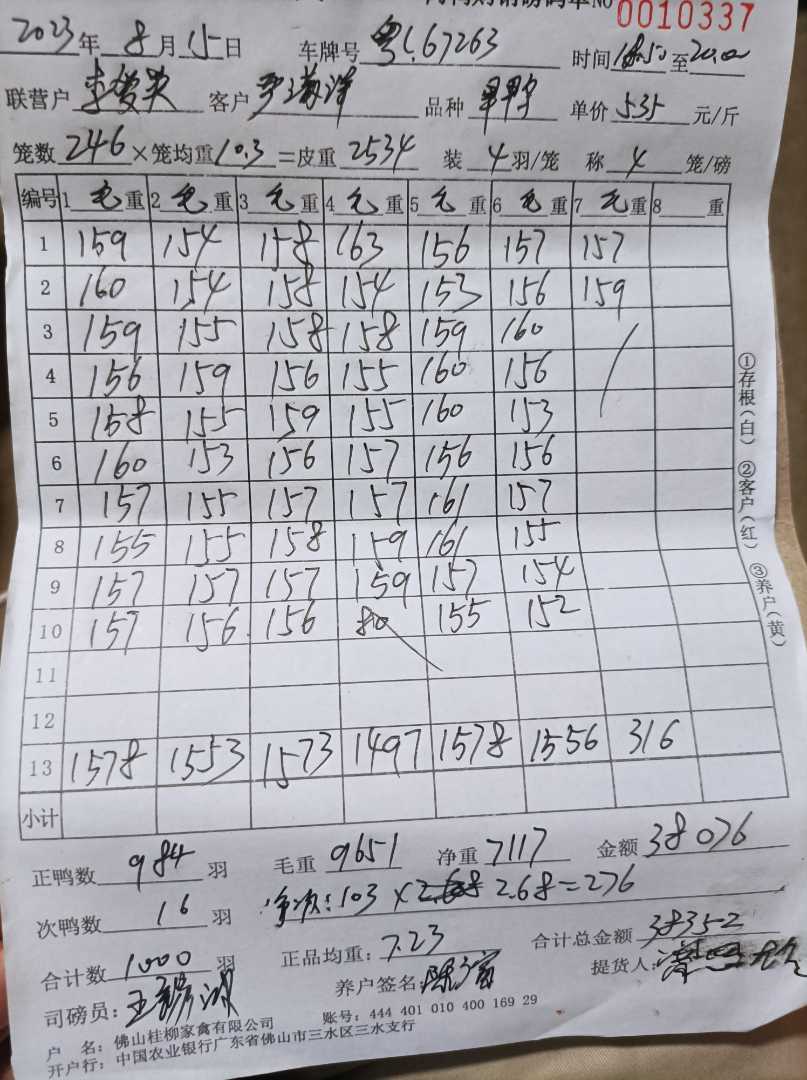 磅码单No 0010337
2023年 8月 15日 车牌号 粤L67263 时间 18:50 至 20:00
联营户 李 英 客户 品种 单价 5.35 元/斤
笼数 246 ×笼均重 10.3 =皮重 2534 装 4 羽/笼 称 4 笼/磅
编号 1 毛 重 2 毛 重 3 毛 重 4 毛 重 5 毛 重 6 毛 重 7 毛 重 8 重
1 159 154 158 163 156 157 157
2 160 154 158 154 153 156 159
3 159 155 158 158 159 160
4 156 159 156 155 160 156
5 158 155 159 155 160 153
6 160 153 156 157 156 156
7 157 155 157 157 161 157
8 155 155 158 159 161 155
9 157 157 157 159 157 154
10 157 156 156 80 155 152
11
12
13 1578 1553 1573 1497 1578 1556 316
小计
正鸭数 984 羽 毛重 9651 净重 7117 金额 38076
次鸭数 16 羽 净次: 103 × 2.68 = 276
合计数 1000 羽 正品均重: 7.23 合计总金额 38352
司磅员: 王 养户签名: 陈 提货人:
户 名: 佛山桂柳家禽有限公司 账号: 444 401 010 400 169 29
开户行: 中国农业银行广东省佛山市三水区三水支行
①存根(白) ②客户(红) ③养户(黄)